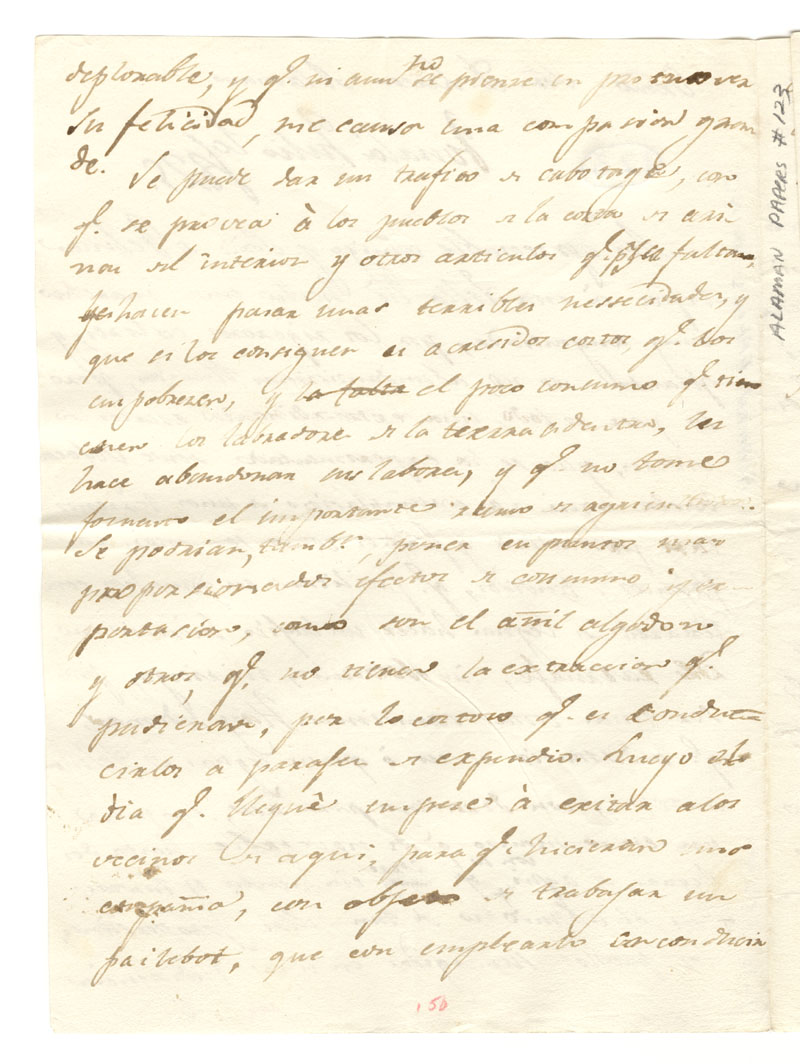 deplorable, y q.e ni aun no se piense en promover
su felicidad, me causa una compasion gran
de.
Se puede dar un trafico de cabotage, con
q.e se provea à los pueblos de la costa de ari
nas del interior y otros articulos q.e falta
hacen pasar unas terribles nessecidades, y
que si los consiguen es a cresidos costos q.e los
empobrezen, y la falta el poco consumo q.e tien
enen los labradore de la tierra adentro, les
hace abandonar sus labores, y q.e no tome
fomento el importante ramo de agricultura.
Se podrian, tamb.n, poner en puntos mas
proporsionados efectos de consumo, y ex-
portasion, como son el añil algodon
y otros, q.e no tienen la extraccion q.e
pudieran, por lo costoso q.e es condu
cirlos a parage de expendio. Luego el
dia q.e lleguè empese à exitar a los
vecinos de aqui, para q.e hicieran una
compañia, con objeto de trabajar un
pailebot, que con emplearlo en conducir
150
ALAMAN PAPERS #123